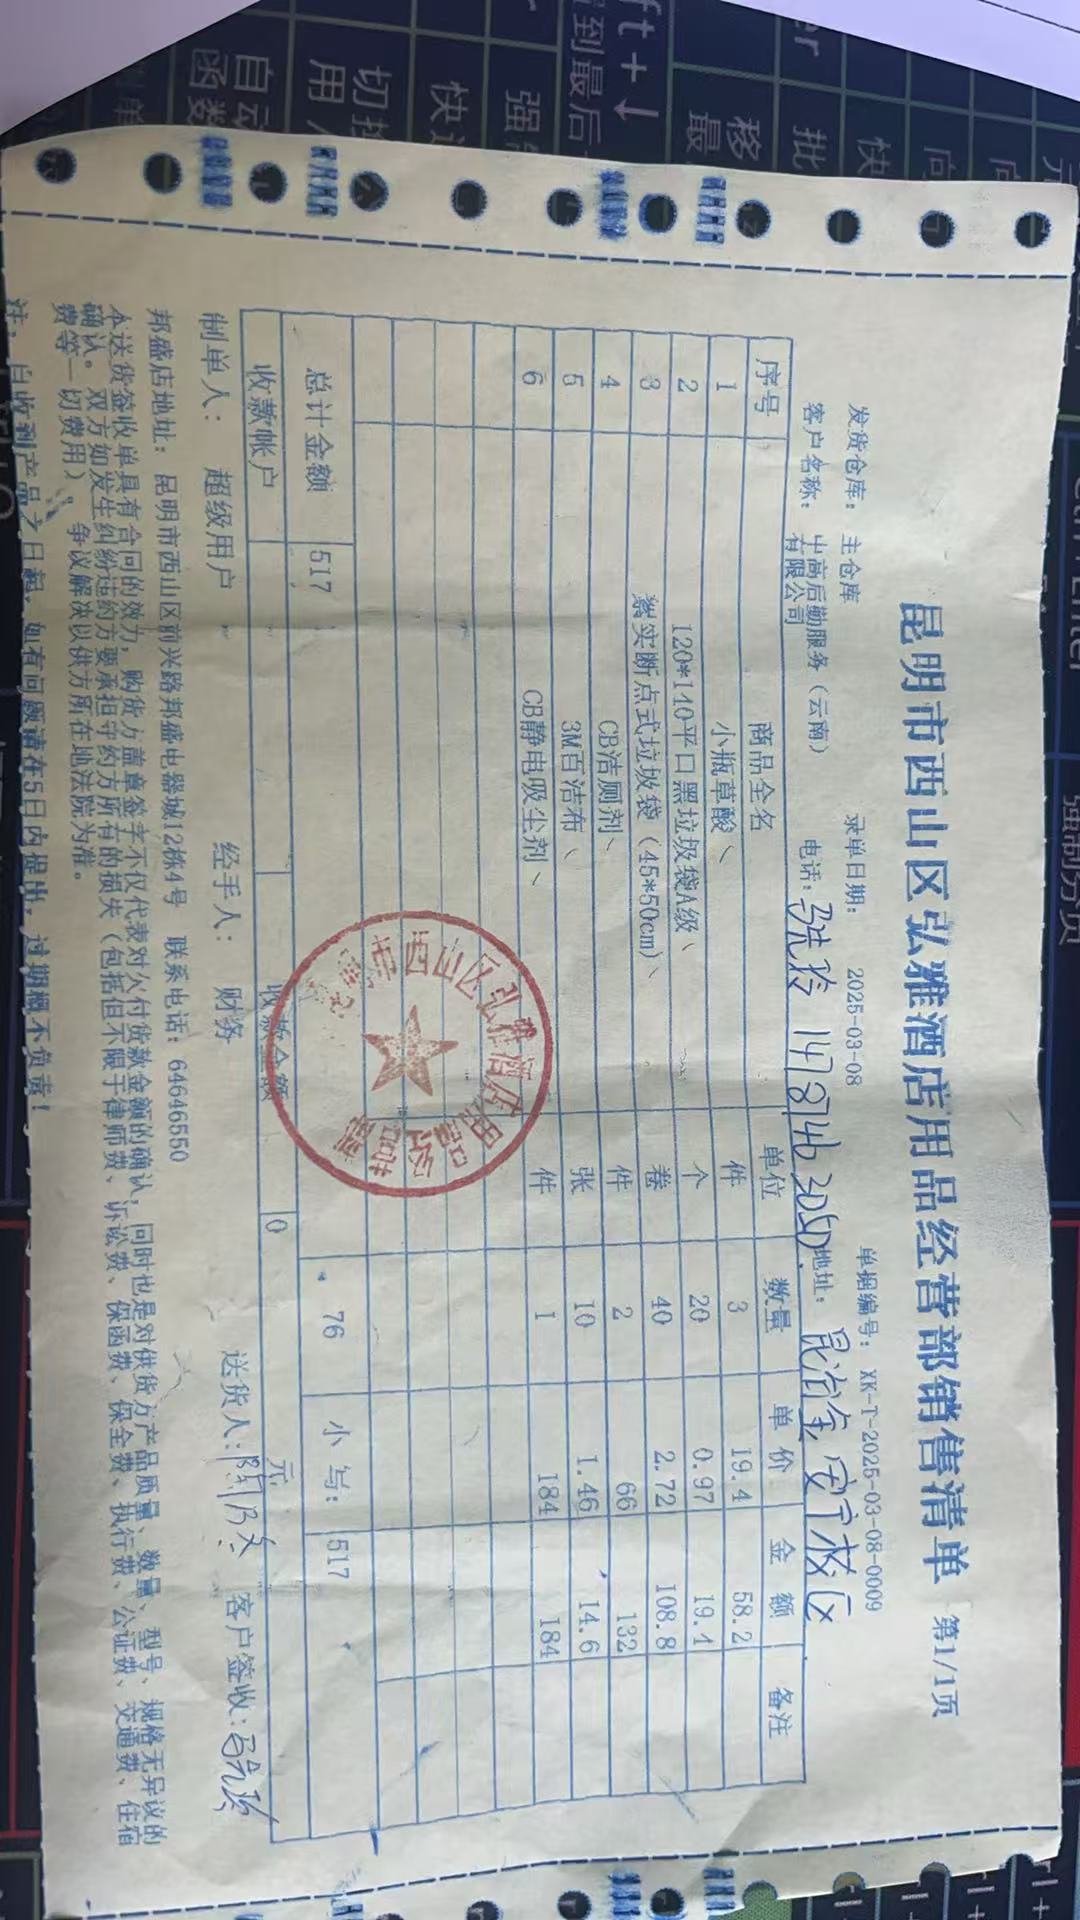 昆明市西山区弘雅酒店用品经营部销售清单 第1/1页
发货仓库： 主仓库 录单日期： 2025-03-08 单据编号： XK-T-2025-03-08-0009
客户名称： 中高后勤服务（云南）有限公司 电话： 14787463050 地址： 昆冶金安宁校区
序号 商品全名 单位 数量 单价 金额 备注
1 小瓶草酸 件 3 19.4 58.2
2 120*140平口黑垃圾袋A级 个 20 0.97 19.4
3 紮实断点式垃圾袋（45*50cm） 卷 40 2.72 108.8
4 CB洁厕剂 件 2 66 132
5 3M百洁布 张 10 1.46 14.6
6 CB静电吸尘剂 件 1 184 184
总计金额 517 76 小写： 517
收款帐户 收款金额 0 元
制单人： 超级用户 经手人： 财务 送货人： 客户签收：
邦盛店地址： 昆明市西山区前兴路邦盛电器城12栋4号 联系电话：64646550
本送货签收单具有合同的效力，购货方盖章签字不仅代表对欠付货款金额的确认，同时也是对供货方产品质量、数量、型号、规格无异议的
确认。双方如发生纠纷违约方要承担守约方所有的损失（包括但不限于律师费、诉讼费、保函费、保全费、执行费、公证费、交通费、住宿
费等一切费用）。 争议解决以供方所在地法院为准。
注：自收到产品之日起，如有问题请在5日内提出，过期概不负责！
昆明市西山区弘雅酒店用品经营部